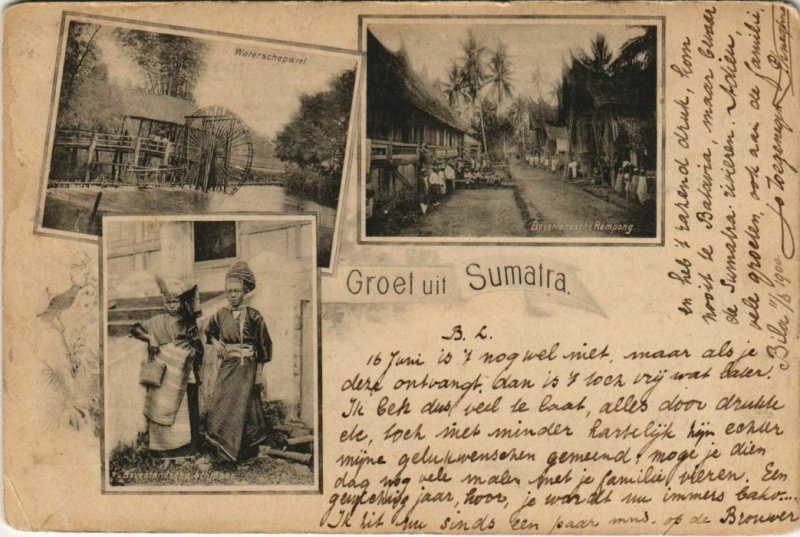 Waterschepwiel.
Bovenlandsche Kampong.
Groet uit Sumatra.
Bovenlandsch echtpaar.
B. L.
16 Juni is 't nog wel niet, maar als je
deze ontvangt, dan is 't toch vrij wat later.
Ik ben dus veel te laat, alles door drukte
etc, toch niet minder hartelijk zijn echter
mijne gelukwenschen gemeend; moge je dien
dag nog vele malen met je familie vieren. Een
gewichtig jaar, hoor, je wordt nu immers
Ik zit nu sinds een paar mnd. op de Brouwer
en heb 't razend druk, kom
nooit te Batavia, maar bevaar
de Sumatra rivieren. Adieu,
vele groeten, ook aan de familie.
je toegenegen
Bila 11/8 1900.